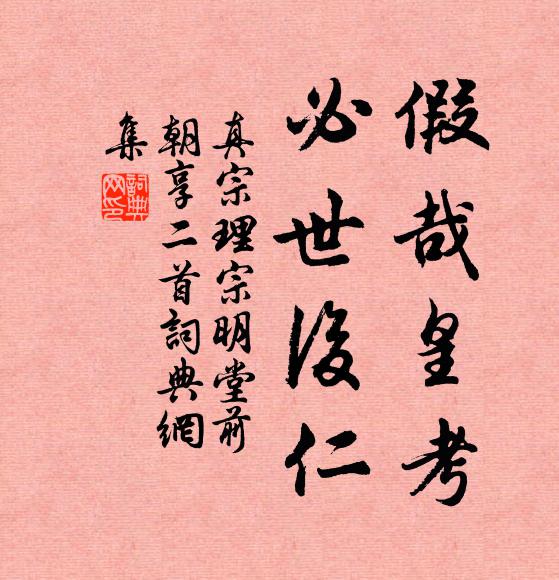 假哉皇考
必世後仁
真宗理宗明堂前
朝享二首詞典網
集
詞典網印